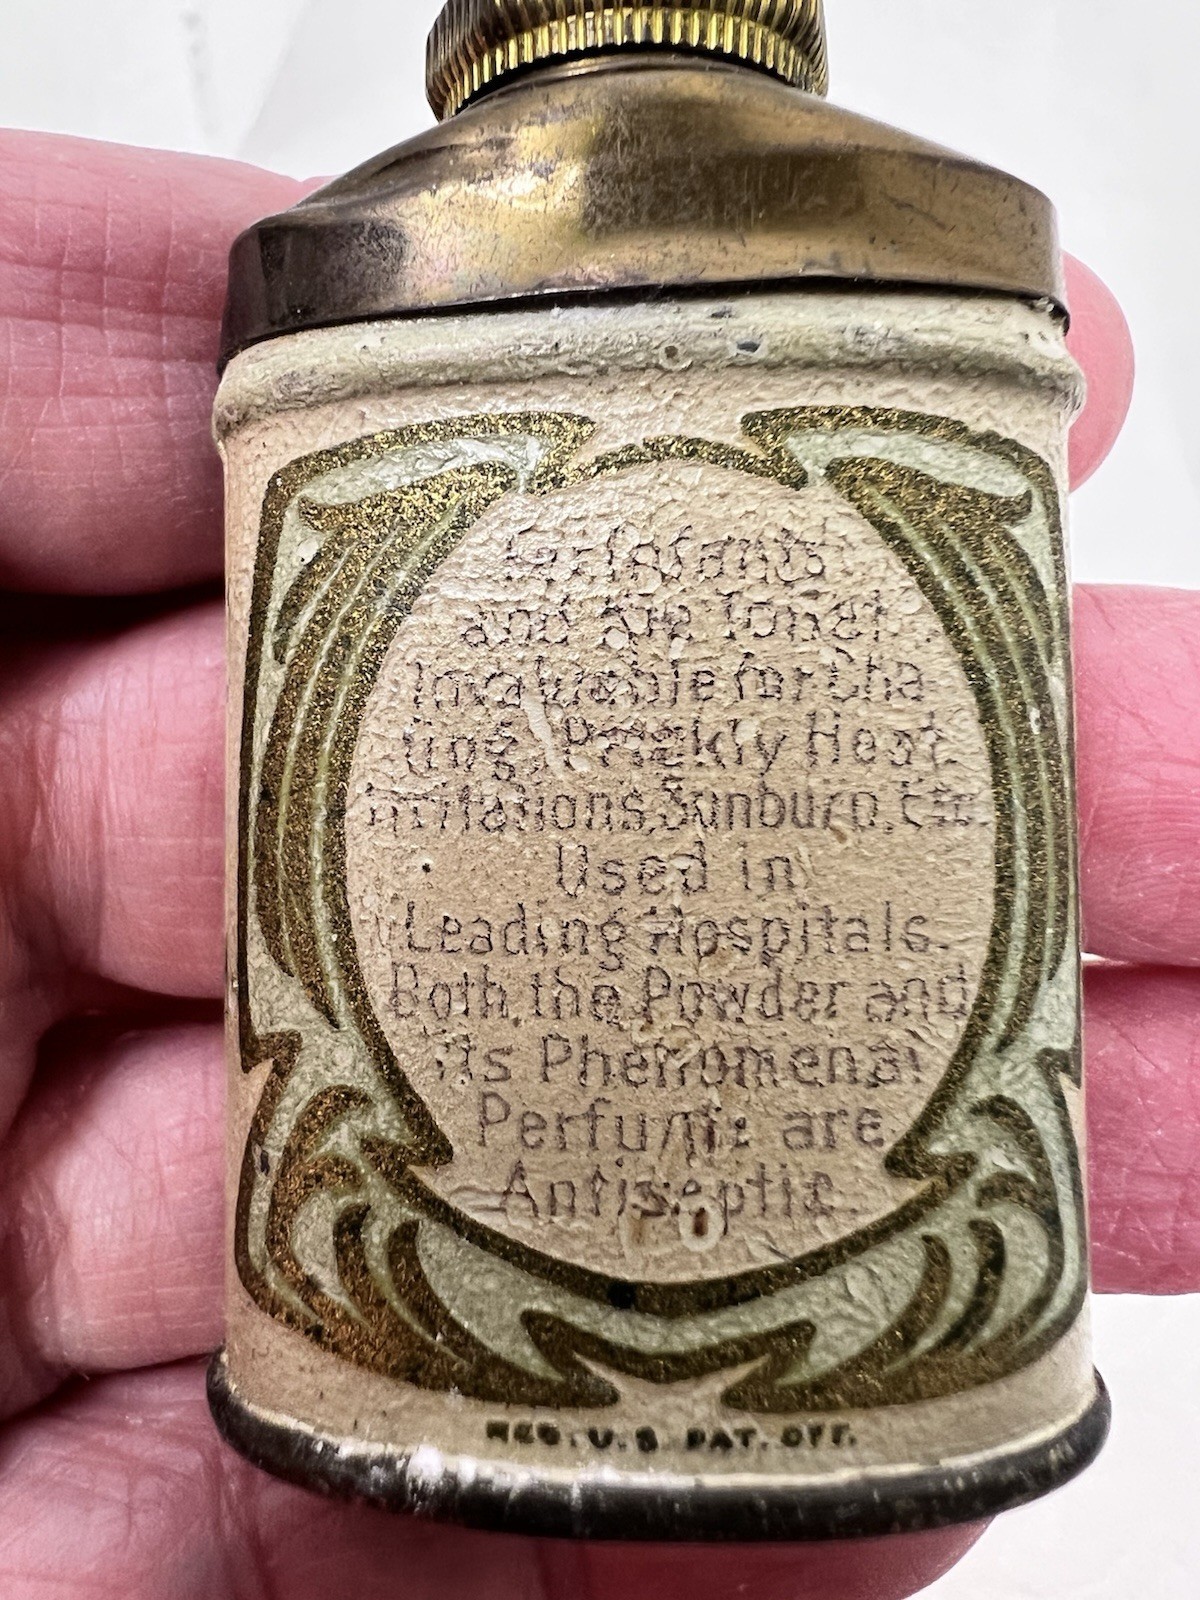 For Infants
and the Toilet.
Invaluable for Cha
fing, Prickly Heat
Irritations, Sunburn, Etc.
Used in
Leading Hospitals.
Both the Powder and
its Phenomenal
Perfume are
Antiseptic.
REG. U.S. PAT. OFF.